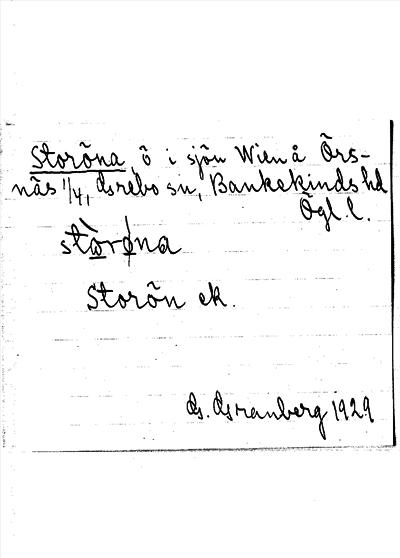 Storöna, ö i sjön Wien å Örs-
näs 1/4, Grebo sn, Bankekinds hd
Ögl. l.
stòrǿna
Storön ek.
G. Granberg 1929